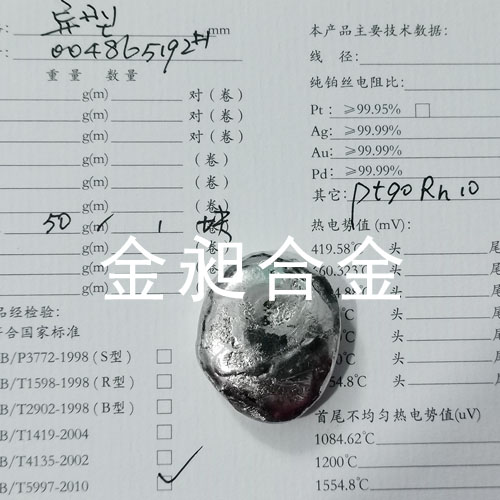 异型
mm
004865192#1
重量 数量
g(m) 对（卷）
g(m) 对（卷）
g(m) 对（卷）
g(m) （卷）
g(m) （卷）
g(m) （卷）
50 g(m) 1 块
g(m) （卷）
g(m) （卷）
g(m)
品经检验:
符合国家标准
B/P3772-1998 (S型)
B/T1598-1998 (R型)
B/T2902-1998 (B型)
B/T1419-2004
B/T4135-2002
B/T5997-2010
本产品主要技术数据:
线 径:
纯铂丝电阻比:
Pt: ≥99.95%
Ag: ≥99.99%
Au: ≥99.99%
Pd: ≥99.99%
其它: Pt90Rh10
热电势值 (mV):
419.58℃ 头 尾
660.323℃ 头 尾
头 尾
℃ 头 尾
℃ 头 尾
℃ 头 尾
头 尾
首尾不均匀热电势值(uV)
1084.62℃
1200℃
1554.8℃
金昶合金